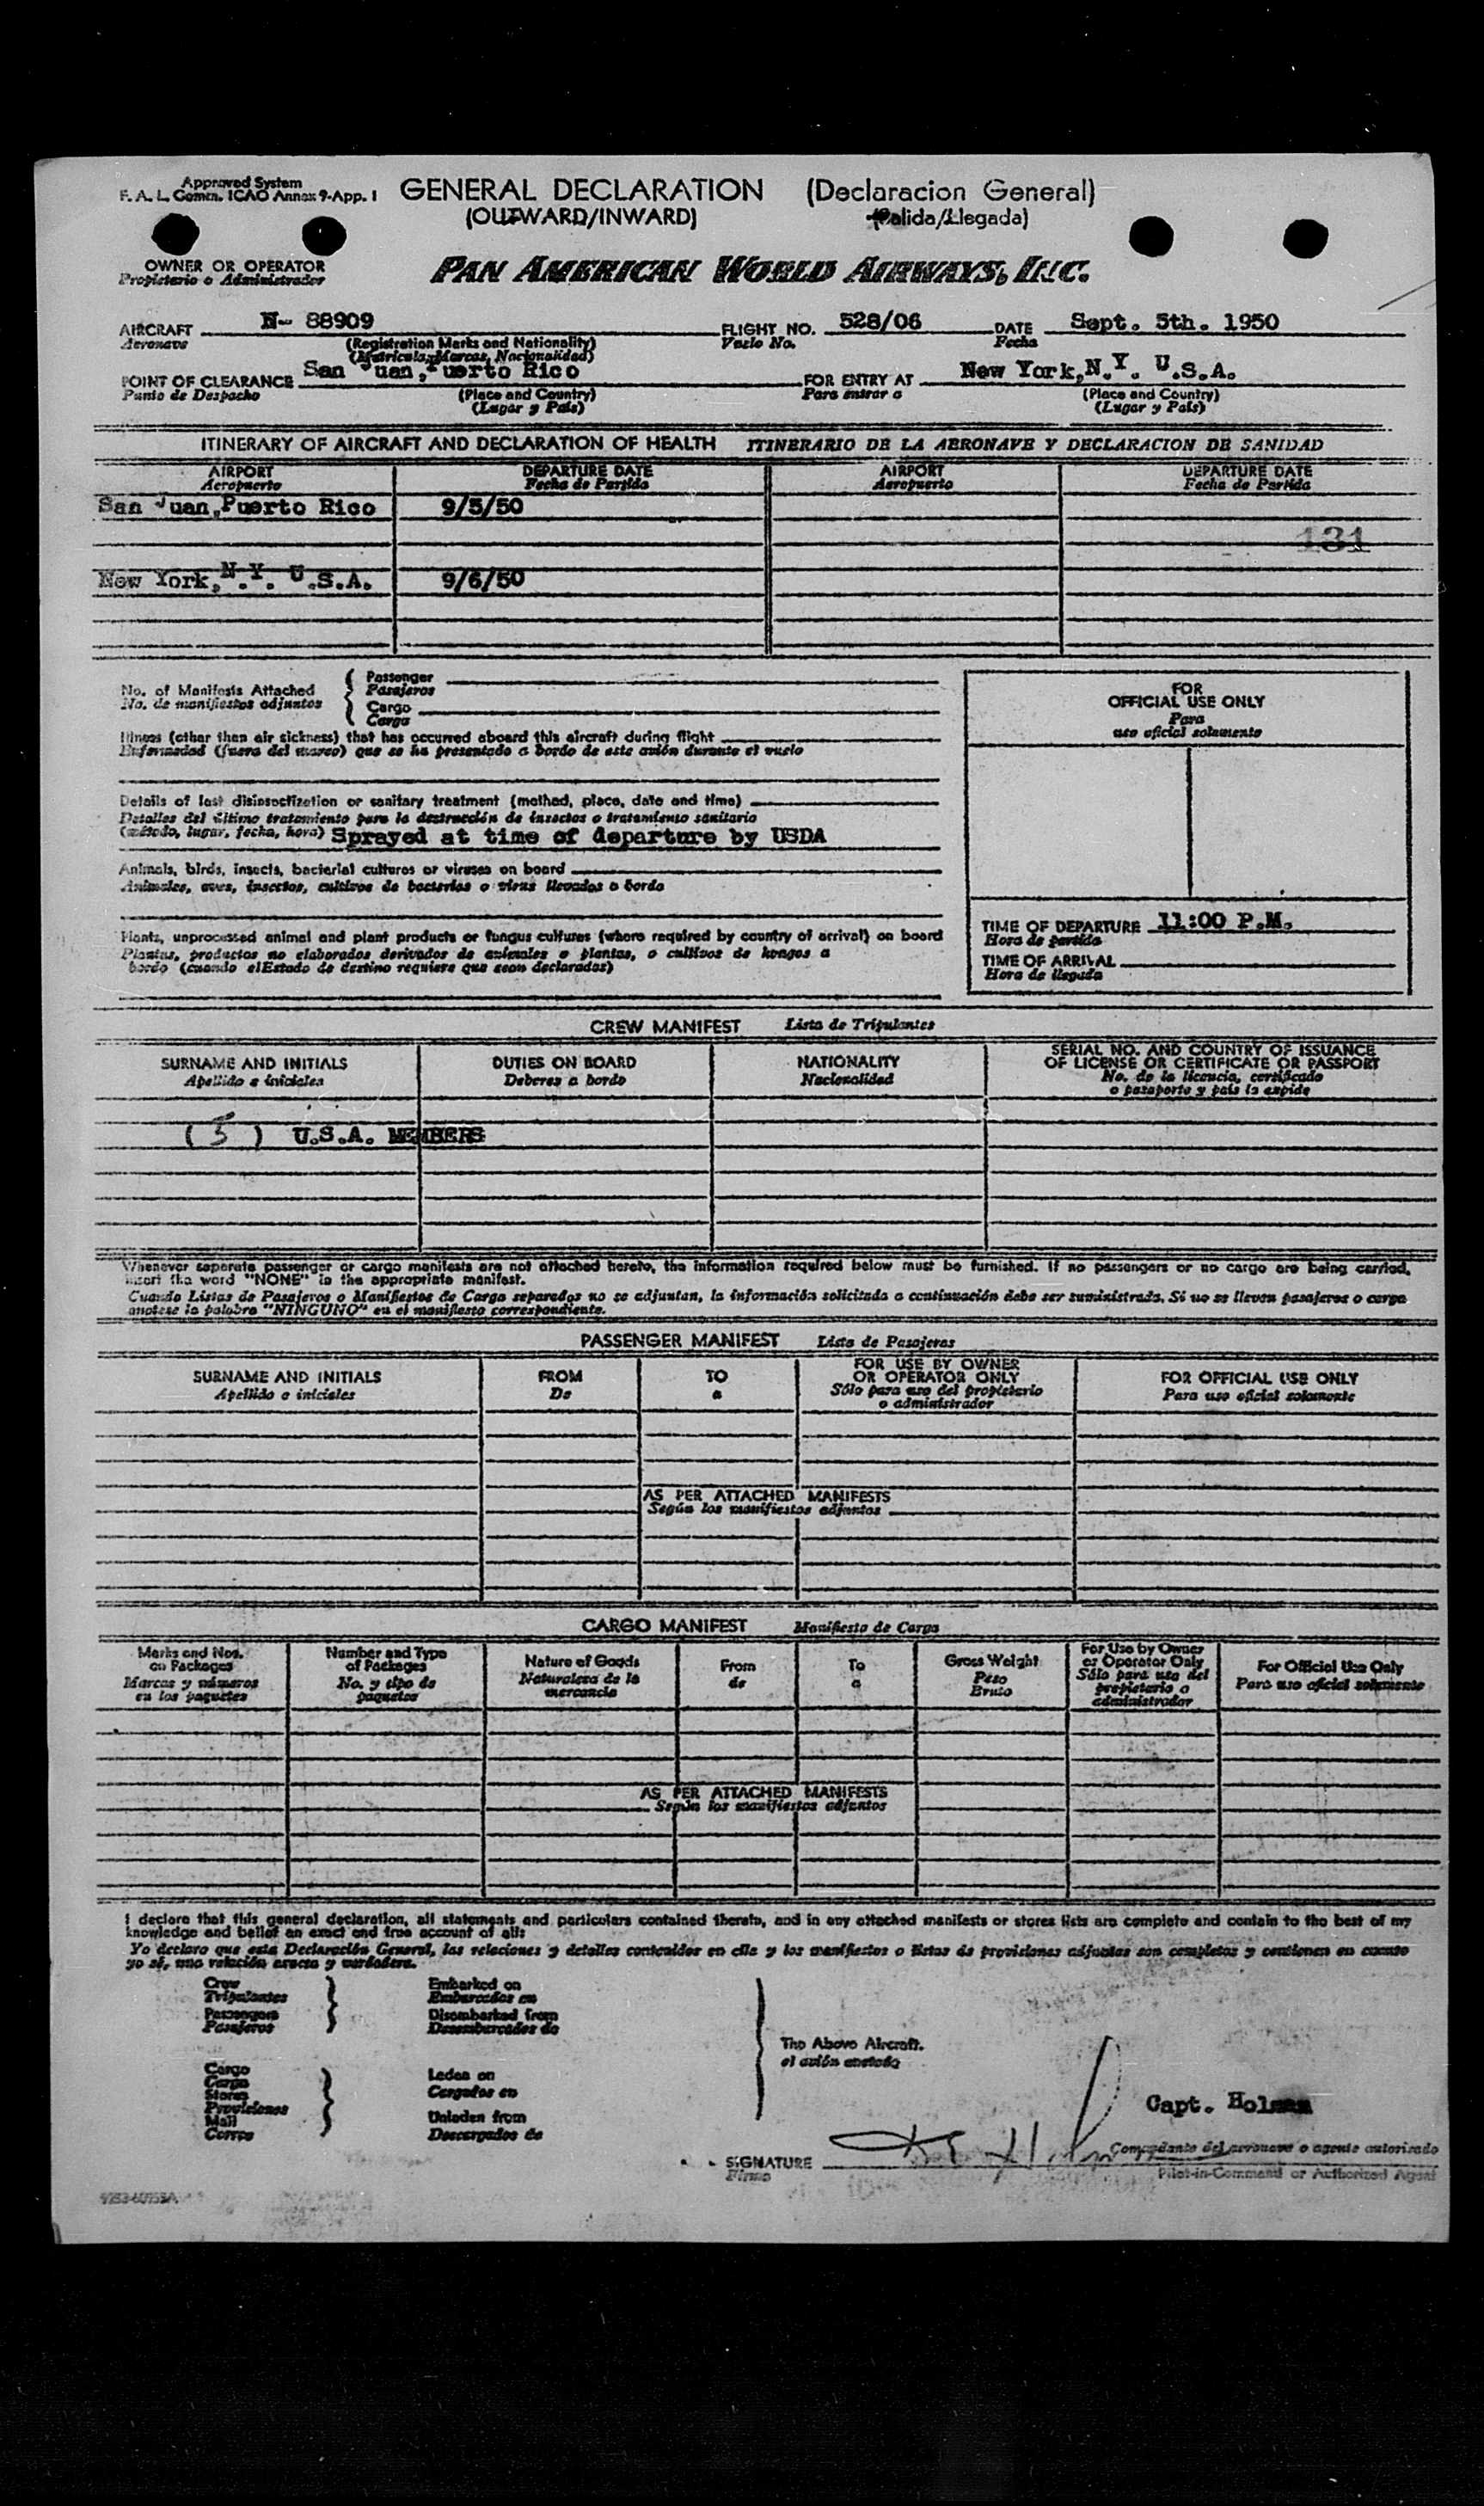 Approved System
F. A. L. Comm. ICAO Annex 9-App. 1
GENERAL DECLARATION (Declaracion General)
(OUTWARD/INWARD) (Salida/Llegada)
OWNER OR OPERATOR
Propietario o Administrador
PAN AMERICAN WORLD AIRWAYS, INC.
AIRCRAFT N- 88909 FLIGHT NO. 528/06 DATE Sept. 5th. 1950
Aeronave (Registration Marks and Nationality) Vuelo No. Fecha
(Matricula, Marcas, Nacionalidad)
POINT OF CLEARANCE San Juan, Puerto Rico FOR ENTRY AT New York, N.Y. U.S.A.
Punto de Despacho (Place and Country) Para entrar a (Place and Country)
(Lugar y País) (Lugar y País)
ITINERARY OF AIRCRAFT AND DECLARATION OF HEALTH ITINERARIO DE LA AERONAVE Y DECLARACION DE SANIDAD
AIRPORT DEPARTURE DATE AIRPORT DEPARTURE DATE
Aeropuerto Fecha de Partida Aeropuerto Fecha de Partida
San Juan, Puerto Rico 9/5/50
131
New York, N.Y. U.S.A. 9/6/50
No. of Manifests Attached
No. de manifiestos adjuntos
Passenger
Pasajeros
Cargo
Carga
Illness (other than air sickness) that has occurred aboard this aircraft during flight
Enfermedad (fuera del mareo) que se ha presentado a bordo de este avión durante el vuelo
Details of last disinsectization or sanitary treatment (method, place, date and time)
Detalles del último tratamiento para la destrucción de insectos o tratamiento sanitario
(método, lugar, fecha, hora) Sprayed at time of departure by USDA
Animals, birds, insects, bacterial cultures or viruses on board
Animales, aves, insectos, cultivos de bacterias o virus llevados a bordo
Plants, unprocessed animal and plant products or fungus cultures (where required by country of arrival) on board
Plantas, productos no elaborados derivados de animales o plantas, o cultivos de hongos a
bordo (cuando el Estado de destino requiera que sean declarados)
FOR
OFFICIAL USE ONLY
Para
uso oficial solamente
TIME OF DEPARTURE 11:00 P.M.
Hora de partida
TIME OF ARRIVAL
Hora de llegada
CREW MANIFEST Lista de Tripulantes
SURNAME AND INITIALS DUTIES ON BOARD NATIONALITY SERIAL NO. AND COUNTRY OF ISSUANCE
Apellido e iniciales Deberes a bordo Nacionalidad OF LICENSE OR CERTIFICATE OR PASSPORT
No. de la licencia, certificado
o pasaporte y país la expide
( 5 ) U.S.A. MEMBERS
Whenever separate passenger or cargo manifests are not attached hereto, the information required below must be furnished. If no passengers or no cargo are being carried,
insert the word "NONE" in the appropriate manifest.
Cuando Listas de Pasajeros o Manifiestos de Carga separados no se adjuntan, la información solicitada a continuación debe ser suministrada. Si no se llevan pasajeros o carga
anótese la palabra "NINGUNO" en el manifiesto correspondiente.
PASSENGER MANIFEST Lista de Pasajeros
SURNAME AND INITIALS FROM TO FOR USE BY OWNER FOR OFFICIAL USE ONLY
Apellido e iniciales De a OR OPERATOR ONLY Para uso oficial solamente
Sólo para uso del propietario
o administrador
AS PER ATTACHED MANIFESTS
Según los manifiestos adjuntos
CARGO MANIFEST Manifiesto de Carga
Marks and Nos. on Packages Number and Type of Packages Nature of Goods From To Gross Weight For Use by Owner or Operator Only For Official Use Only
Marcas y números en los paquetes No. y tipo de paquetes Naturaleza de la mercancía de a Peso Bruto Sólo para uso del propietario o administrador Para uso oficial solamente
AS PER ATTACHED MANIFESTS
Según los manifiestos adjuntos
I declare that this general declaration, all statements and particulars contained therein, and in any attached manifests or stores lists are complete and contain to the best of my
knowledge and belief an exact and true account of all:
Yo declaro que esta Declaración General, las relaciones y detalles contenidos en ella y los manifiestos o listas de provisiones adjuntas son completas y contienen en cuanto
yo sé, una relación exacta y verdadera.
Crew Embarked on
Tripulantes Embarcados en
Passengers Disembarked from
Pasajeros Desembarcados de
The Above Aircraft.
el avión anotado
Cargo Laden on
Carga Cargados en
Stores
Provisiones
Mail Unladen from
Correo Descargados de
Capt. Holman
SIGNATURE Comandante del aeronave o agente autorizado
Firma Pilot-in-Command or Authorized Agent